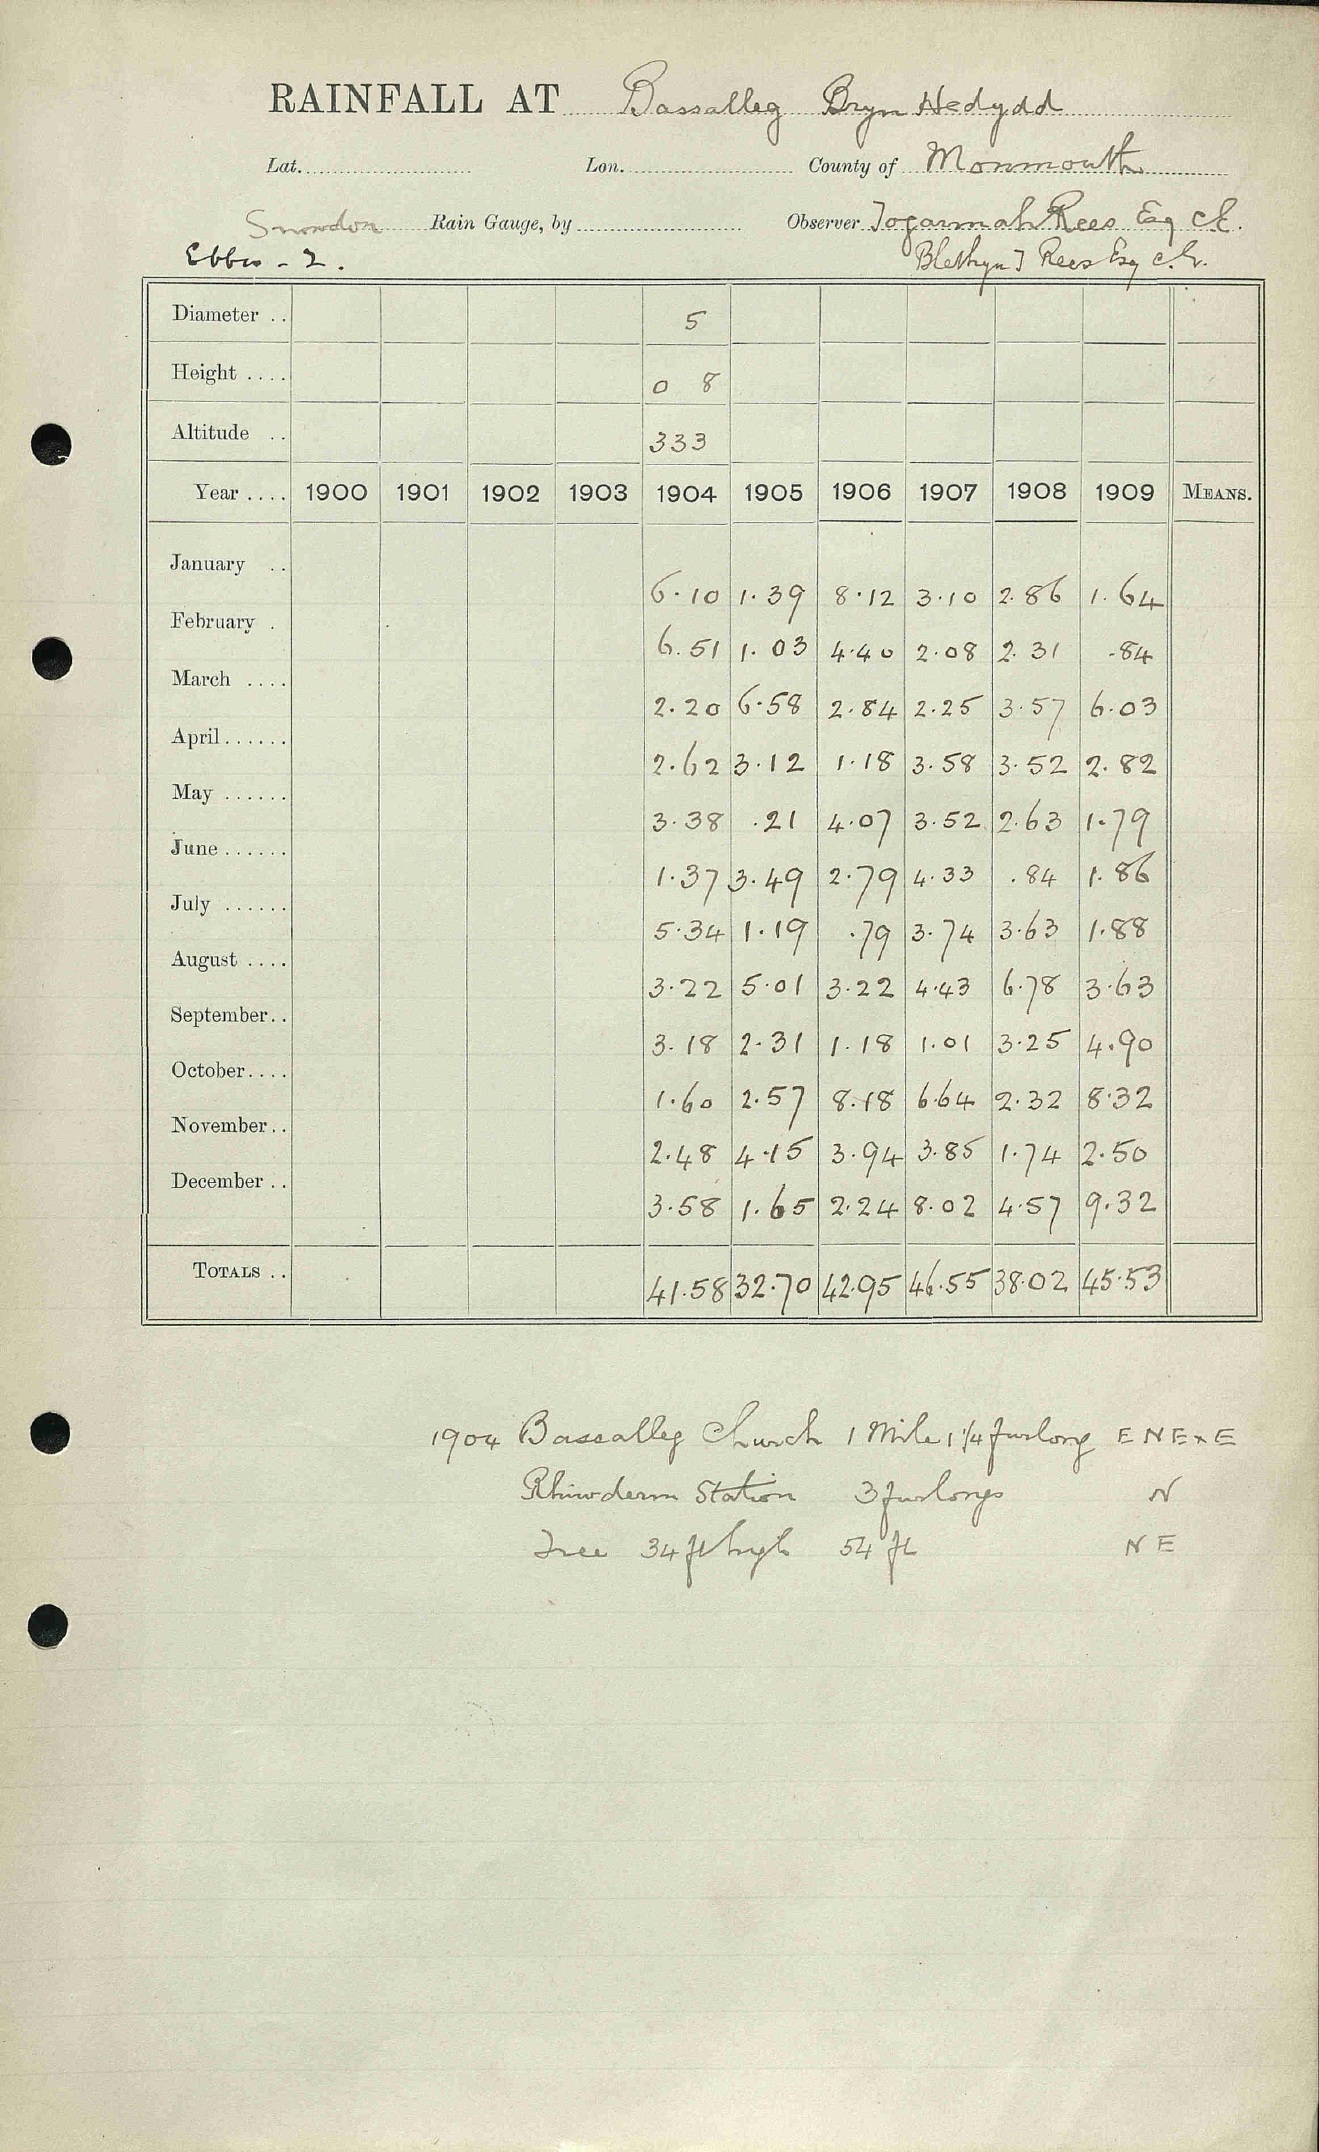 RAINFALL AT Bassalleg Bryn Hedydd
Lat. Lon. County of Monmouth
Snowdon Rain Gauge, by Observer Togarmah Rees Esq C.E.
Ebbw - 2. Blethyn T Rees Esq C.E.
Diameter .. 5
Height .... 0 8
Altitude .. 333
Year .... 1900 1901 1902 1903 1904 1905 1906 1907 1908 1909 MEANS.
January .. 6.10 1.39 8.12 3.10 2.86 1.64
February . 6.51 1.03 4.40 2.08 2.31 .84
March .... 2.20 6.58 2.84 2.25 3.57 6.03
April...... 2.62 3.12 1.18 3.58 3.52 2.82
May ...... 3.38 .21 4.07 3.52 2.63 1.79
June ...... 1.37 3.49 2.79 4.33 .84 1.86
July ...... 5.34 1.19 .79 3.74 3.63 1.88
August .... 3.22 5.01 3.22 4.43 6.78 3.63
September.. 3.18 2.31 1.18 1.01 3.25 4.90
October.... 1.60 2.57 8.18 6.64 2.32 8.32
November.. 2.48 4.15 3.94 3.85 1.74 2.50
December .. 3.58 1.65 2.24 8.02 4.57 9.32
TOTALS .. 41.58 32.70 42.95 46.55 38.02 45.53
1904 Bassalleg Church 1 Mile 1 1/4 furlong E N E x E
Rhiwderin Station 3 furlongs N
Tree 34 ft high 54 ft N E